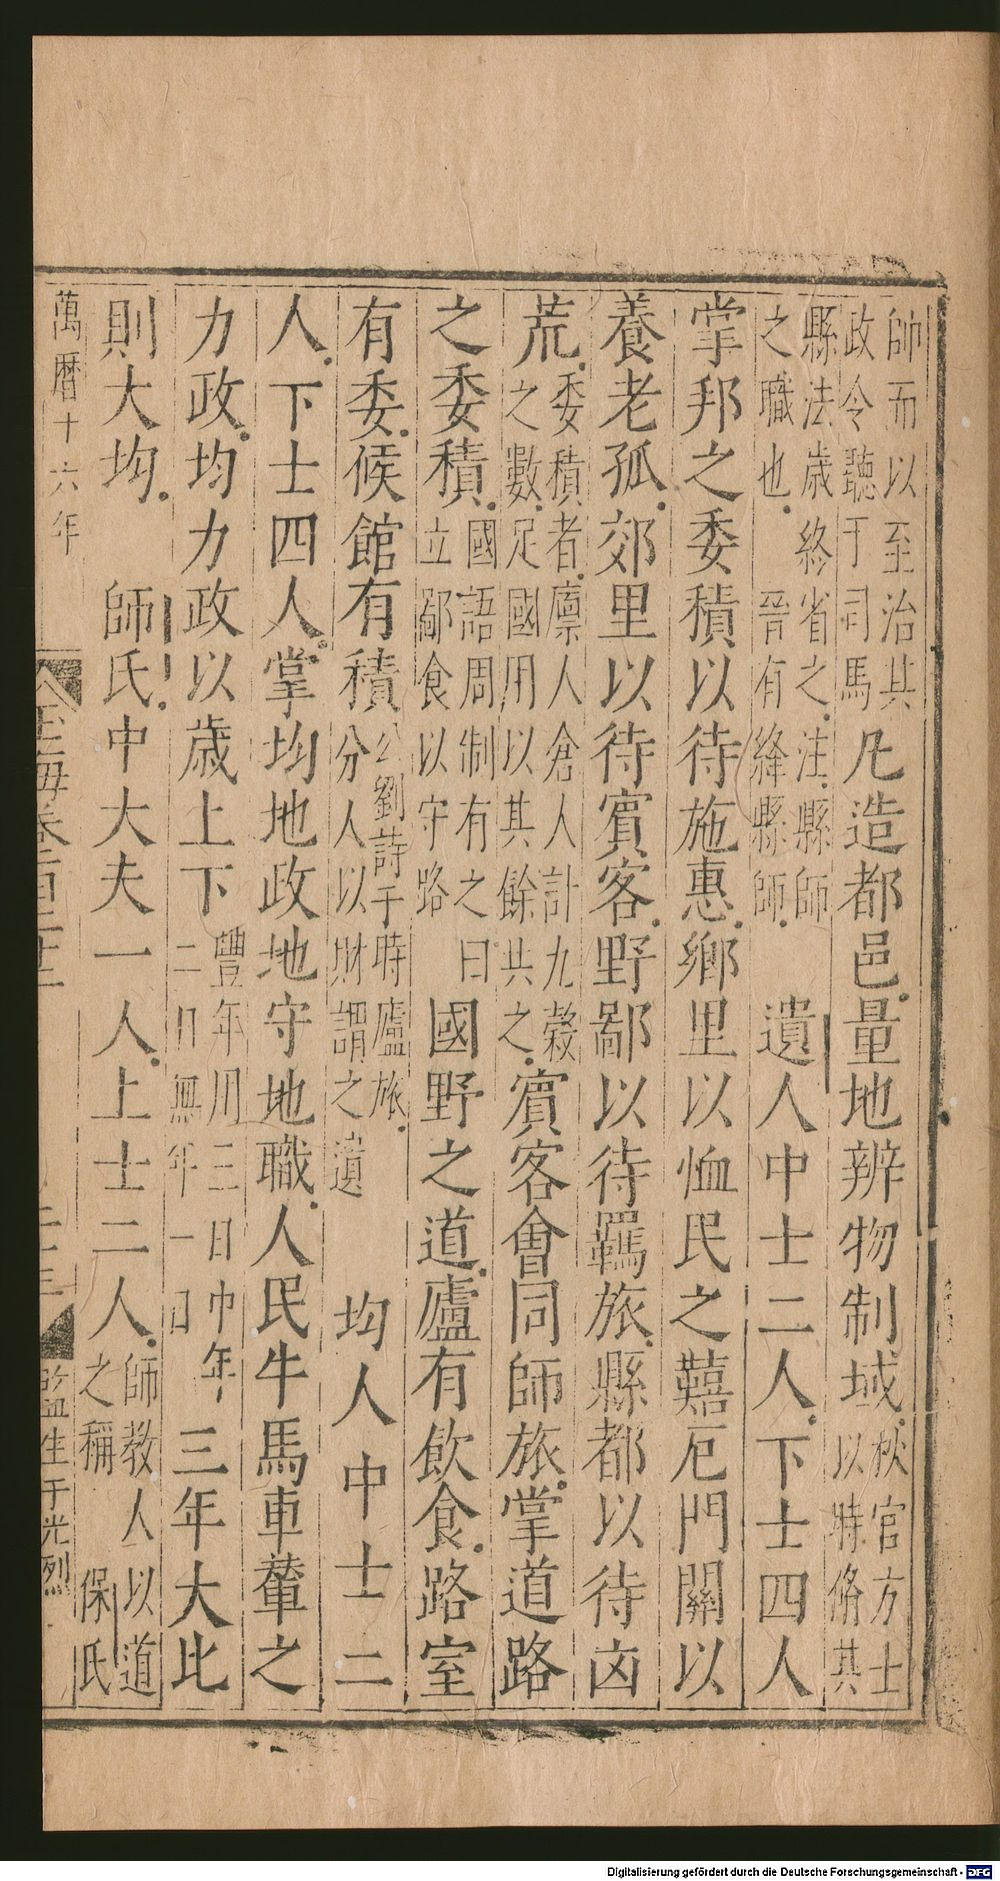 帥而以至治其政令聽于司馬凡造都邑量地辨物制域秋官方士以時脩其
縣法歲終省之注縣師之職也晉有絳縣師遺人中士二人下士四人
掌邦之委積以待施惠鄉里以恤民之囏阨門關以
養老孤郊里以待賓客野鄙以待羈旅縣都以待凶
荒委積者廩人倉人計九穀之數足國用以其餘共之賓客會同師旅掌道路
之委積國語周制有之曰立鄙食以守路國野之道廬有飲食路室
有委候館有積公劉詩于時廬旅分人以財謂之遺均人中士二
人下士四人掌均地政地守地職人民牛馬車輦之
力政均力政以歲上下豐年用三日中年二日無年一日三年大比
則大均師氏中大夫一人上士二人師教人以道之稱保氏
萬曆十六年
玉海卷一百二十二
監生于光烈
Digitalisierung gefördert durch die Deutsche Forschungsgemeinschaft - DFG